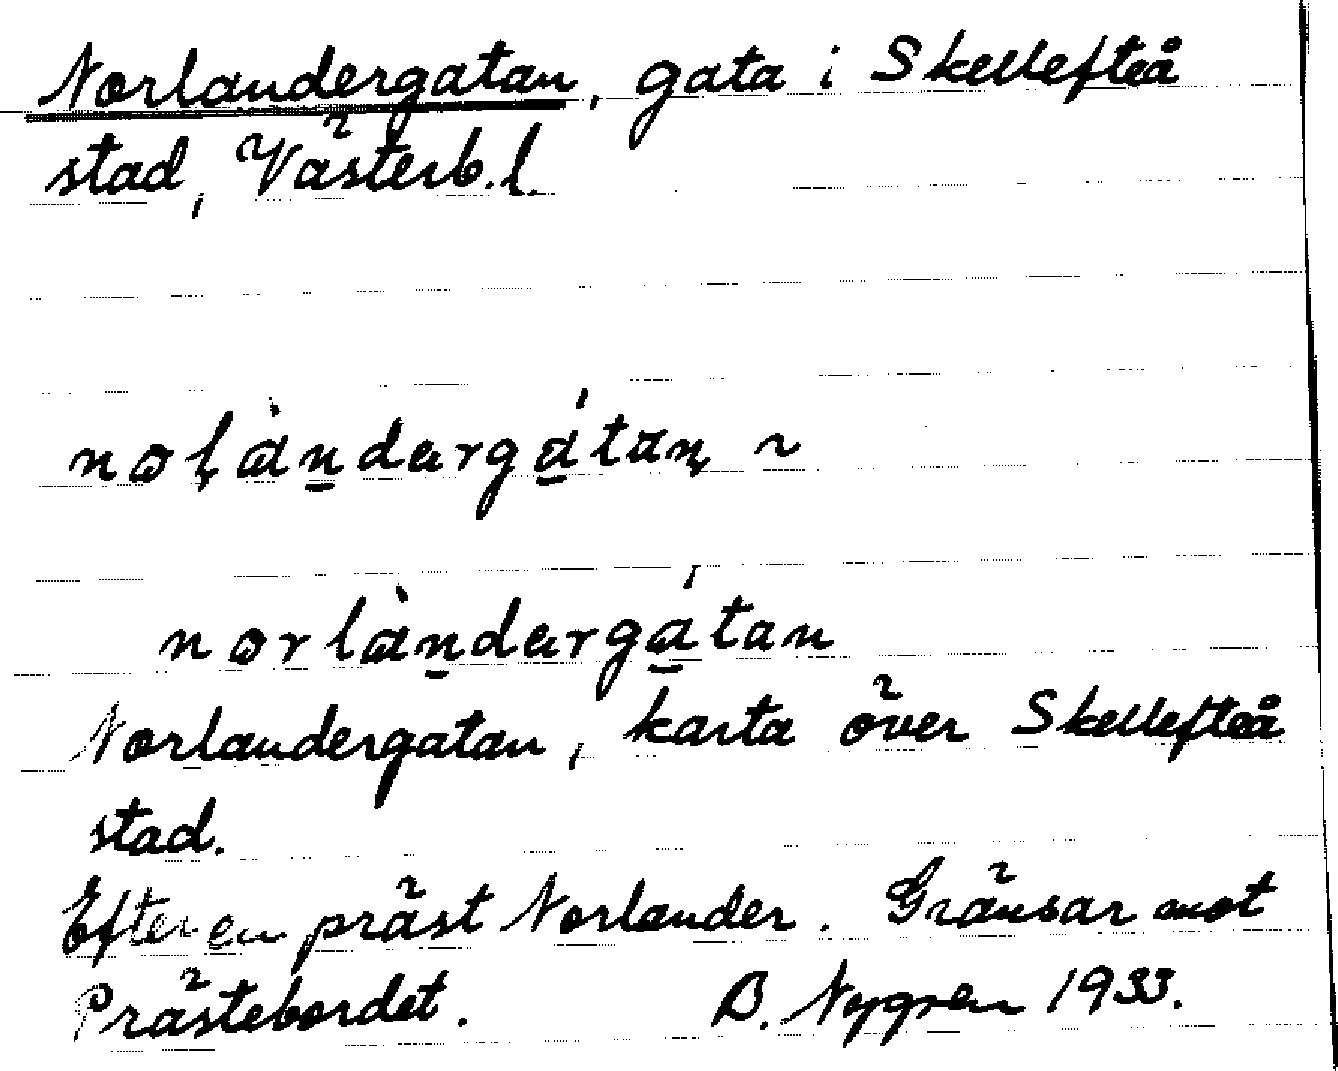 Norlandergatan, gata i Skellefteå
stad, Västerb. l.
nolàndargátan ~
norlàndargátan
Norlandergatan, karta över Skellefteå
stad.
Efter en präst Norlander. Gränsar mot
Prästebordet. B. Nygren 1933.